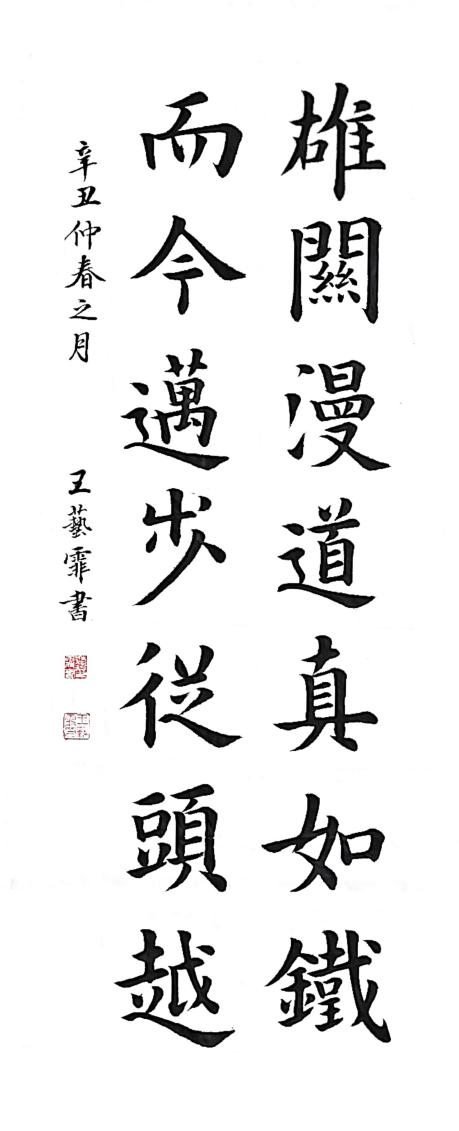 雄關漫道真如鐵
而今邁步從頭越
辛丑仲春之月
王藝霏書